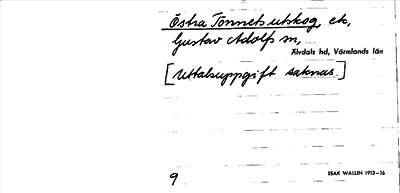 Östra Tonnets utskog, ek,
Gustav Adolfs sn,
Älvdals hd, Värmlands län
[Uttalsuppgift saknas.]
9
ISAK WALLIN 1913–16